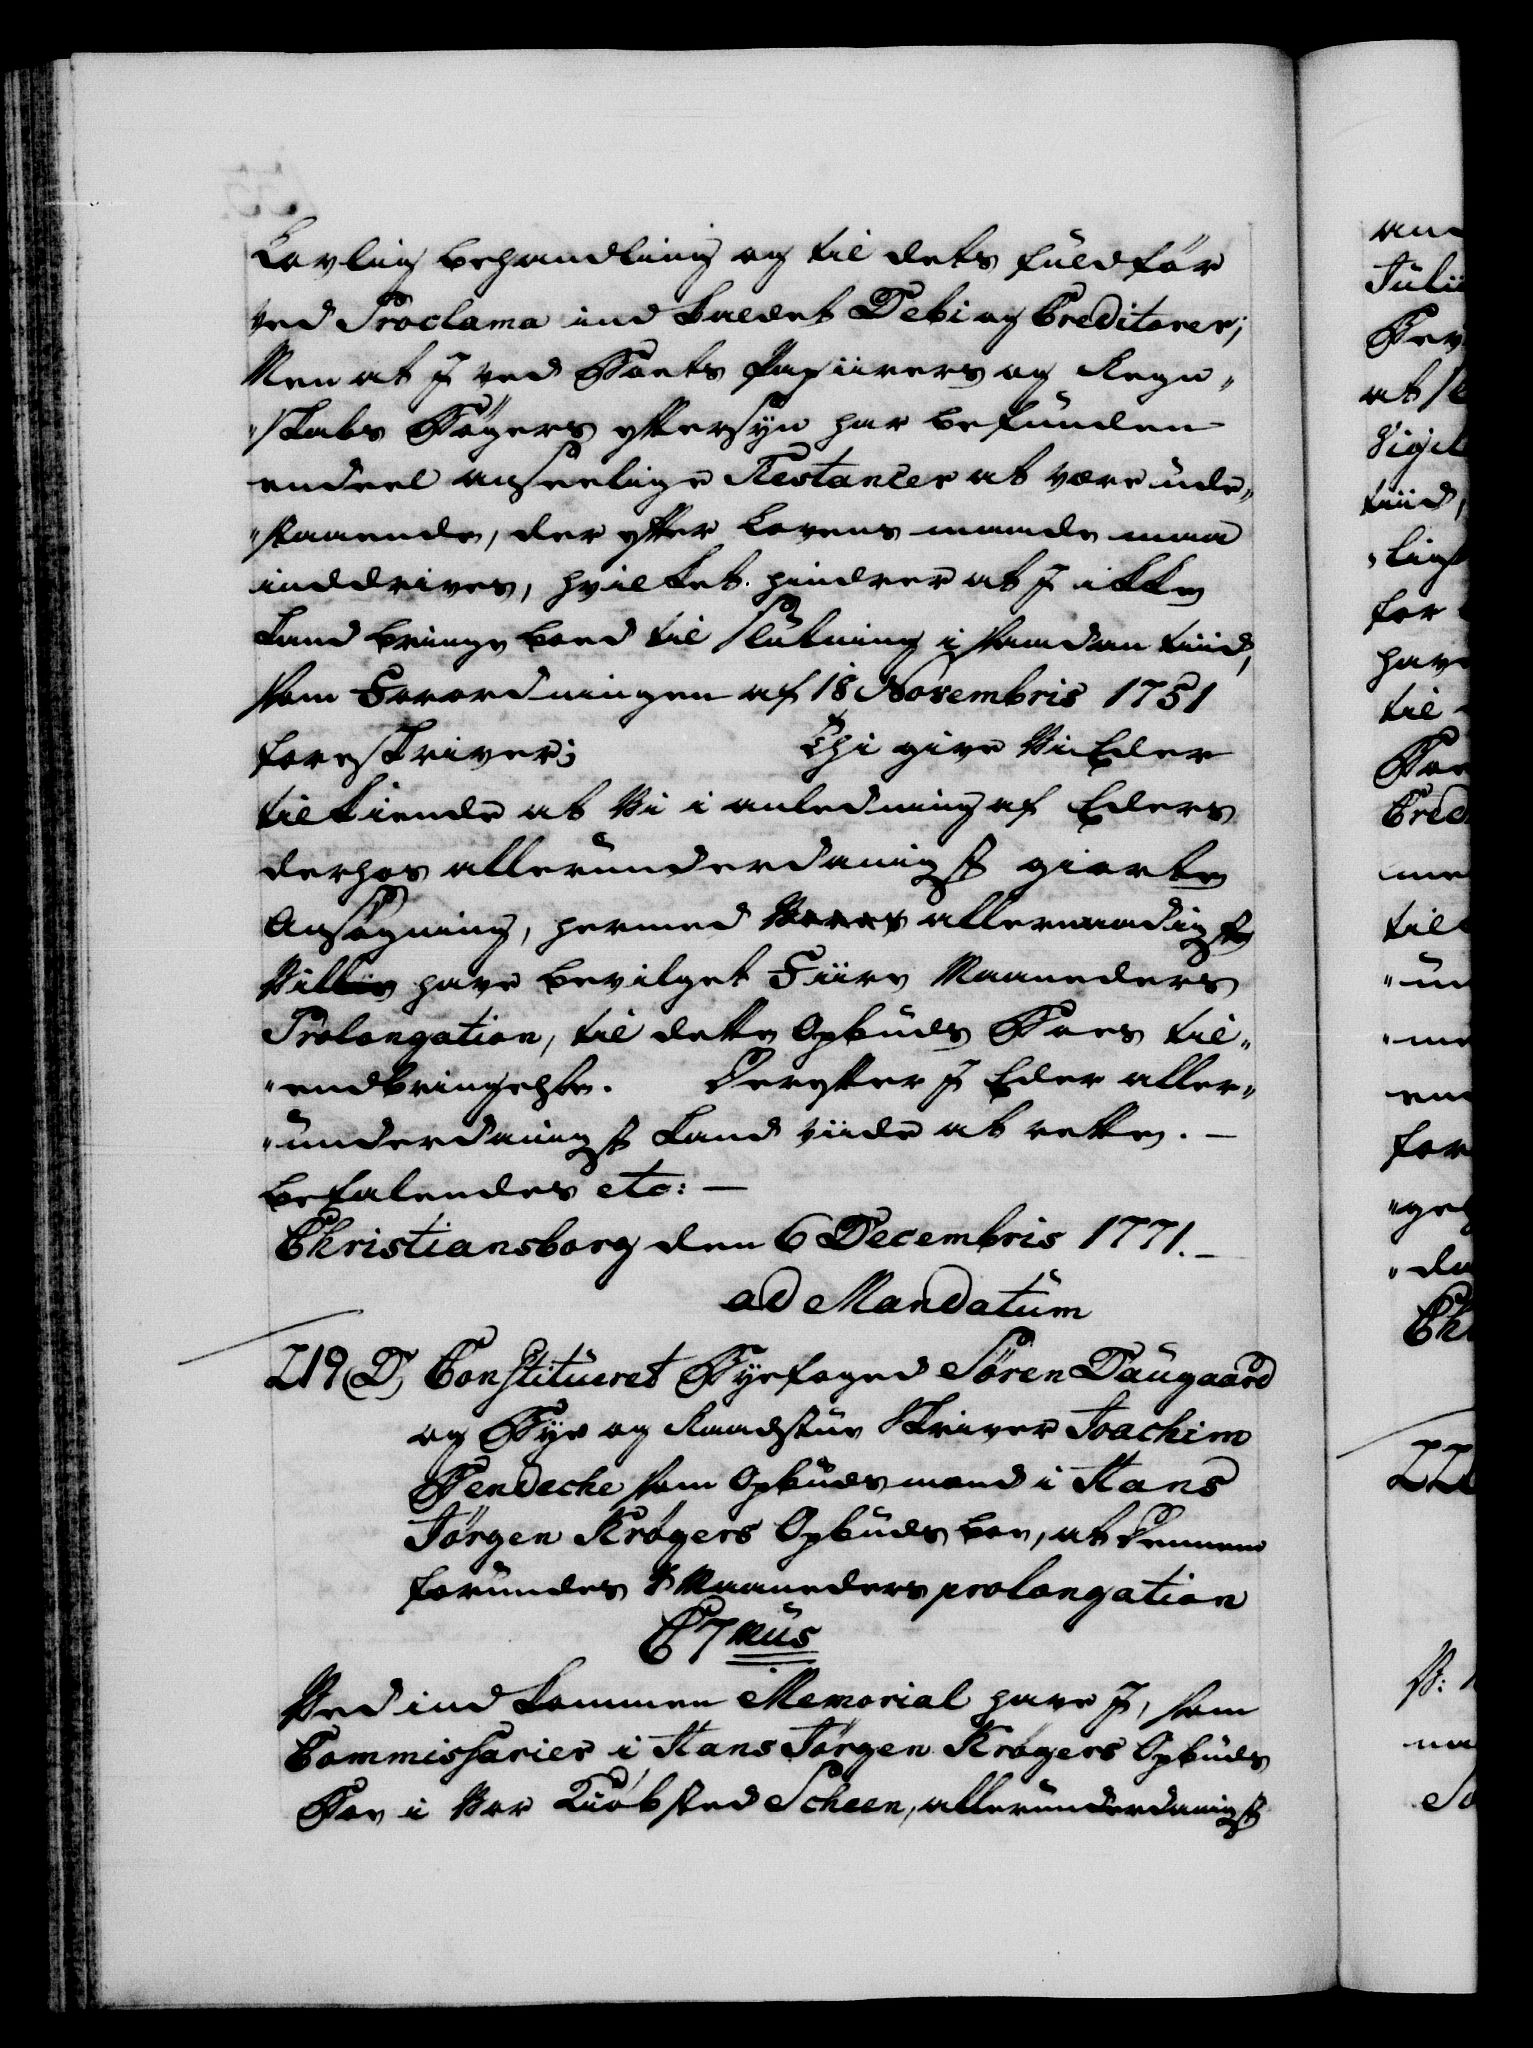 Lovlig behandling og til dets fuldför
ved Proclama ind kaldet Debi og Creditorer;
Men at I ved Boets Papiirers og Regn„
„skabs Bøgers eftersÿn har befunden
endeel anseelige Restancer at være ude„
„staaende, der efter Lovens maade maa
inddrives, hvilket hindrer at I ikke
kand bringe boed til Slutning i saadan tiid,
som Forordningen af 18 Novembris 1751
foreskriver; Thi give Vi Eder
tilkiende at Vi i anledning af Eders
derhos allerunderdanigst giorte
Ansøgning, hermed allernaadigst
Villie have bevilget Fiire Maaneders
Prolongation, til dette Opbuds Boes til„
„endbringelse. Derefter I Eder aller„
„underdanigst kand viide at rette. —
befalendes etc: —
Christiansborg den 6 Decembris 1771. —
ad Mandatum
219 D Constitueret Bÿefoged Søren Daugaard
og Bÿe og Raadstue Skriver Joachim
Bendeche som Opbuds mænd i Hans
Jørgen Krøgers Opbuds boe, at Dennem
forundes Maaneders prolongation
C7mus
Ved ind kommen Memorial have I, som
Commissarier i Hans Jørgen Krøgers Opbuds
Boe i Vor Kiøbsted Scheen, allerunderdanigst